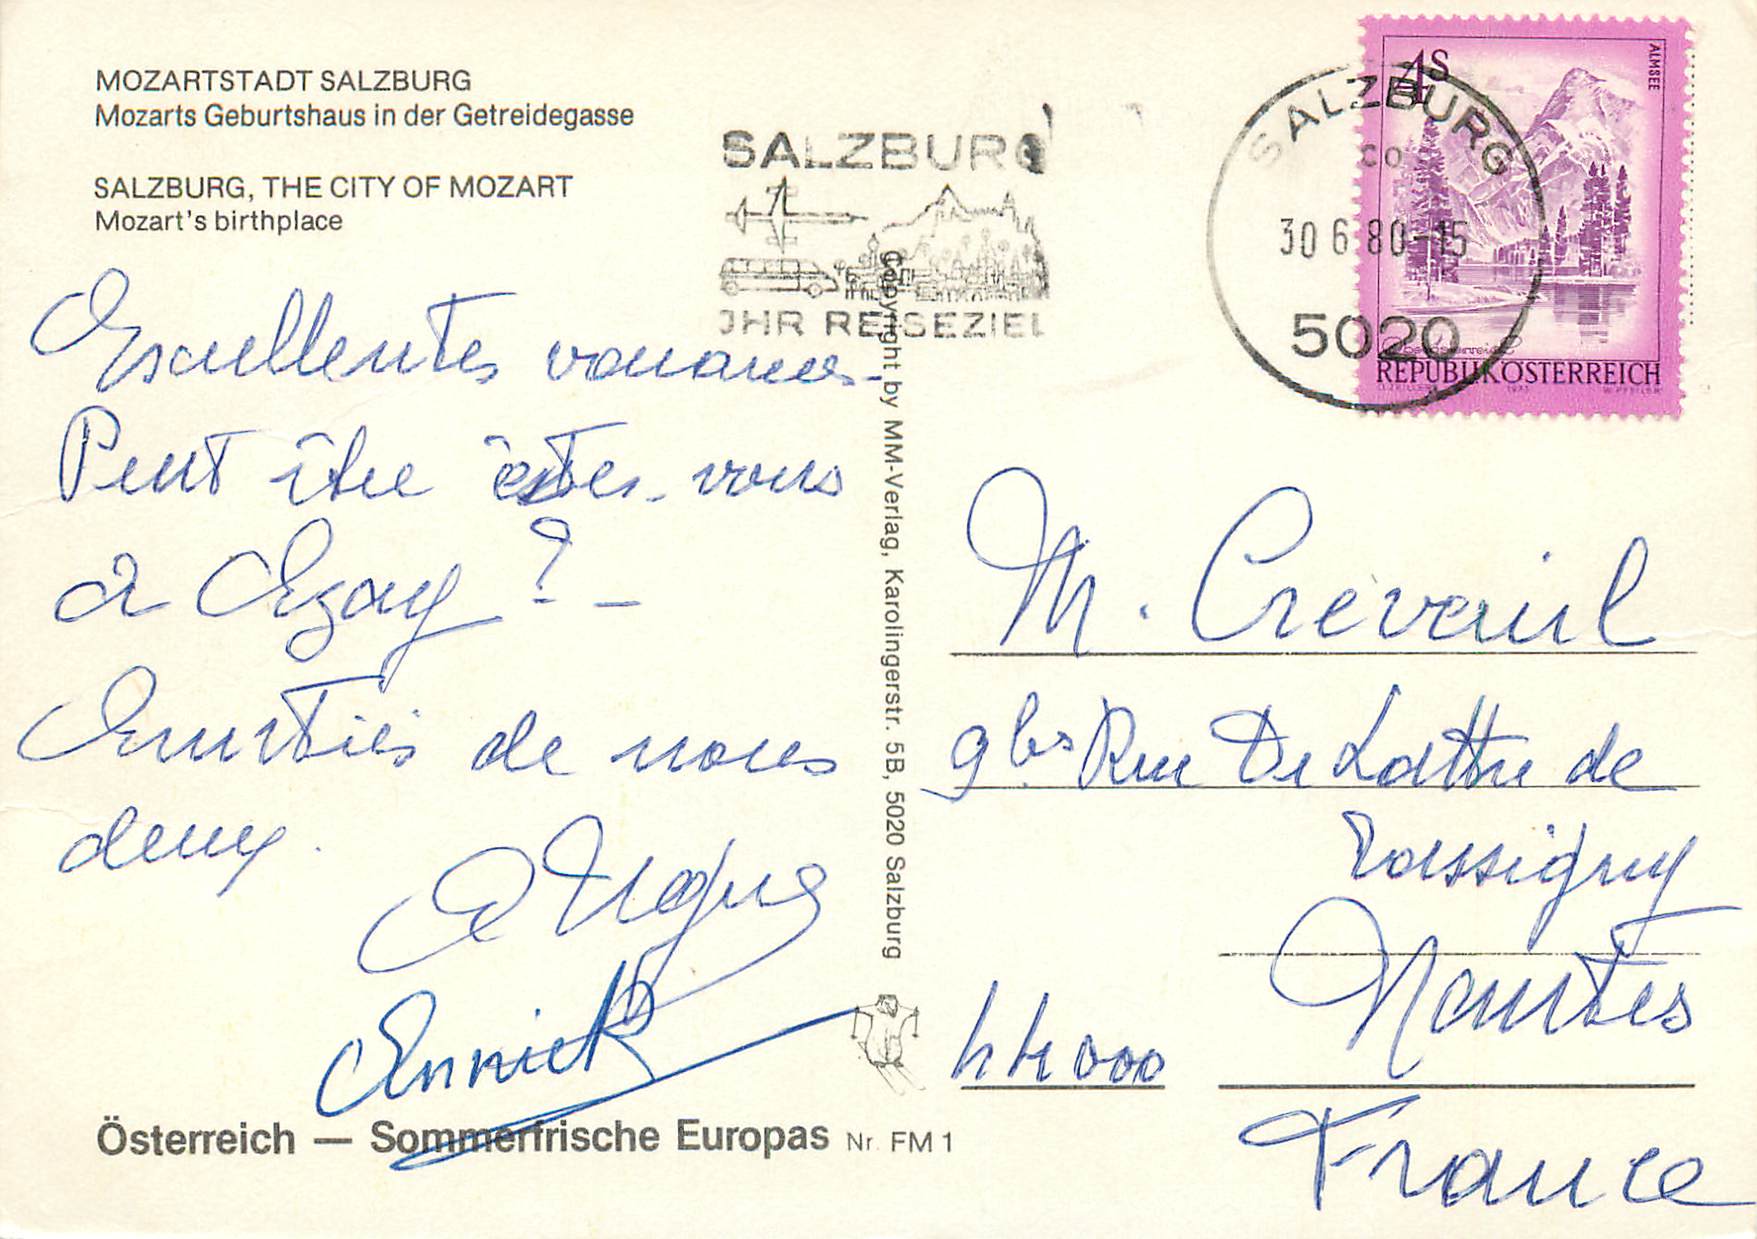 MOZARTSTADT SALZBURG
Mozarts Geburtshaus in der Getreidegasse
SALZBURG, THE CITY OF MOZART
Mozart's birthplace
SALZBURG
JHR REISEZIEL
SALZBURG
30 6 80-15
5020
4S
ALMSEE
REPUBLIK ÖSTERREICH
Excellentes vacances.
Peut être êtes-vous
à Azay ? -
Amitiés de nous
deux.
Annick
Copyright by MM-Verlag, Karolingerstr. 5B, 5020 Salzburg
M. Créveuil
9 bis Rue De Lattre de
Tassigny
Nantes
44000
France
Österreich — Sommerfrische Europas Nr. FM 1